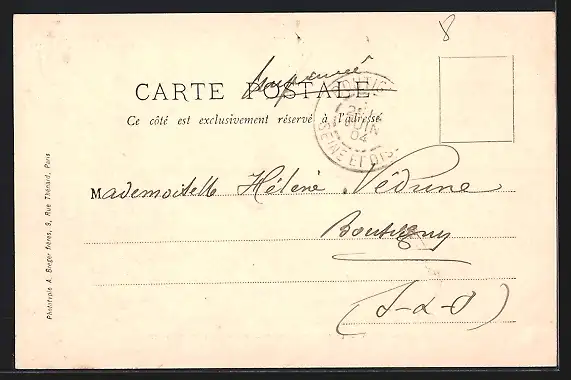 8
Imprimé
CARTE POSTALE
Ce côté est exclusivement réservé à l'adresse
JUIN
04
SEINE ET OISE
Mademoiselle Hélène Védrine
Boutigny
(S-&-O)
Phototypie A. Breger frères, 9, Rue Thénard, Paris